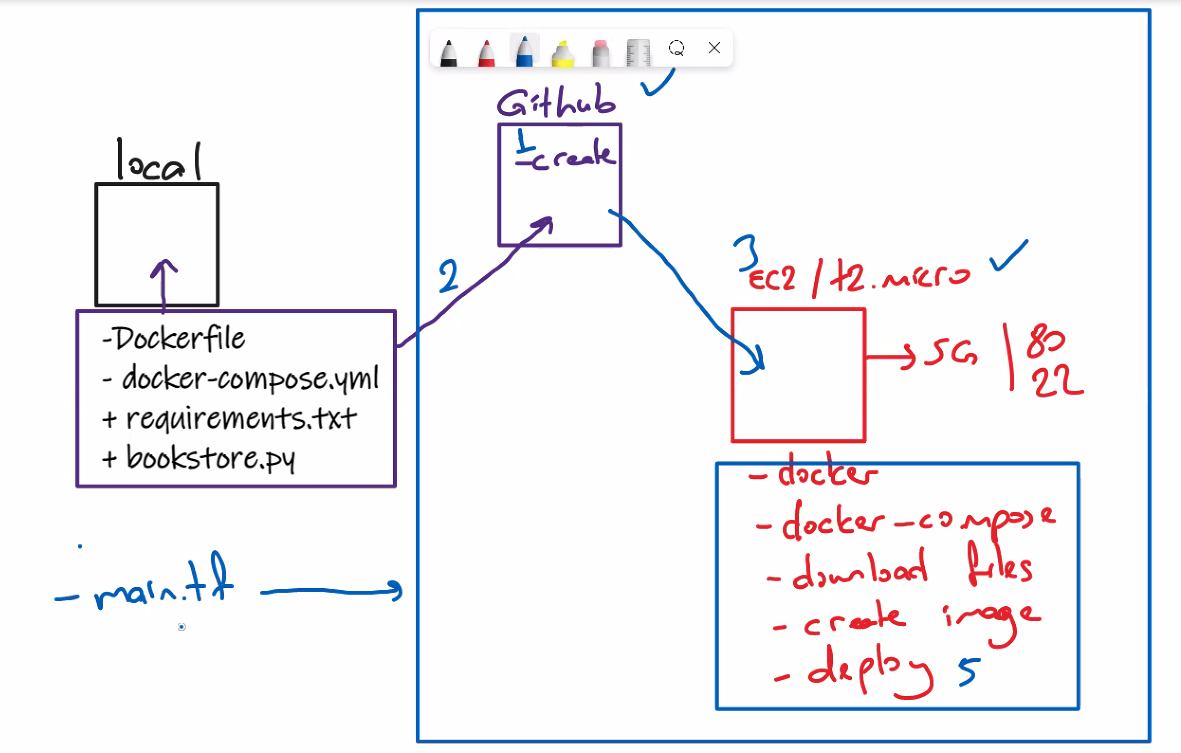 local
-Dockerfile
- docker-compose.yml
+ requirements.txt
+ bookstore.py
- main.tf
Github
1
-create
2
3
EC2 / t2.micro
SG | 80
22
- docker
- docker-compose
- download files
- create image
- deploy 5